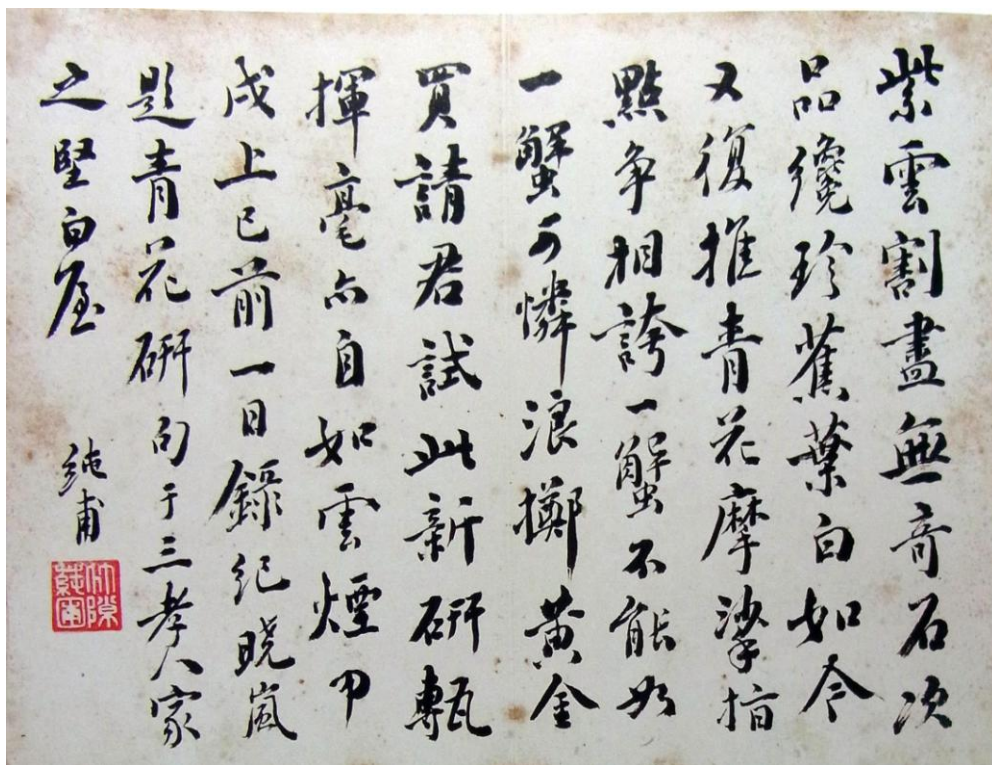 紫雲割盡無奇石次
品纔珍蕉葉白如今
又復推青花摩挲指
點爭相誇一蟹不能如
一蟹可憐浪擲黄金
買請君試此新研甎
揮毫亦自如雲煙甲
戌上巳前一日錄紀曉嵐
題青花研句于三孝人家
之堅白屋
純甫